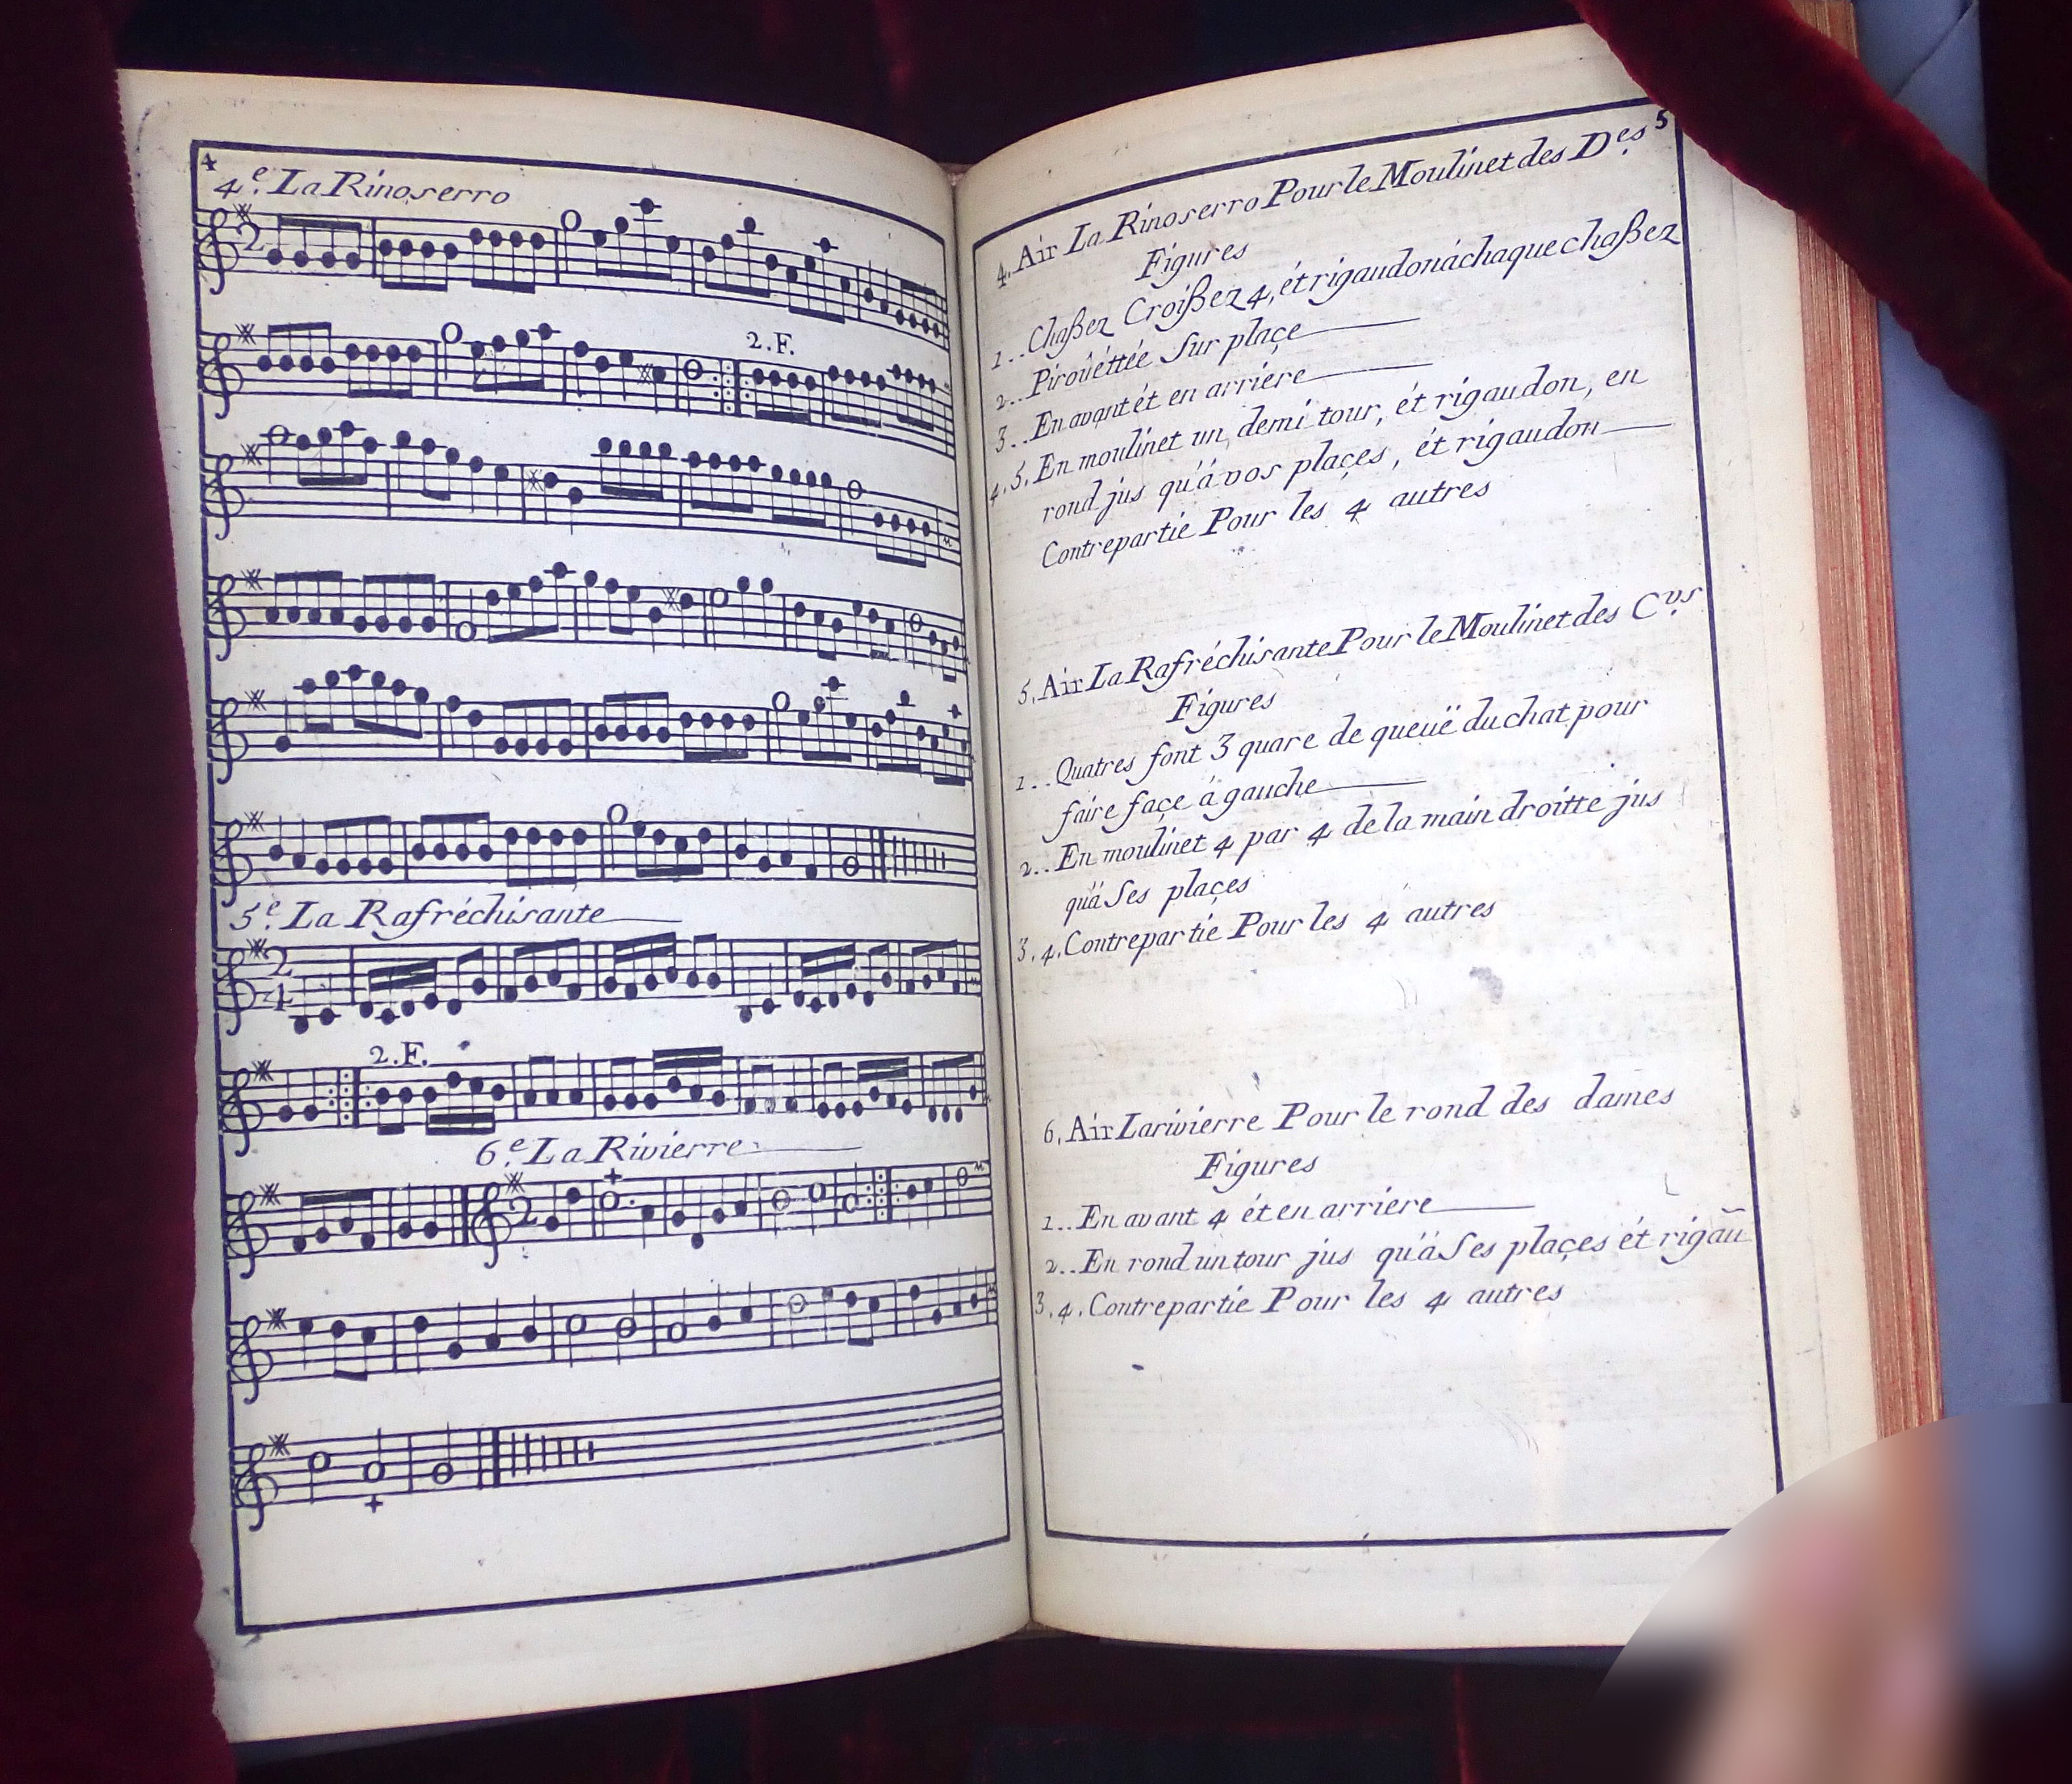 4
4e. La Rinoserro
2
2. F.
5e. La Rafréchisante
2
4
2. F.
6e. La Rivierre
2
5
4. Air La Rinoserro Pour le Moulinet des Des.
Figures
1.. Chaßez Croißez 4, ét rigaudon á chaque chaßez
2.. Piroüéttée Sur plaçe
3.. En avant ét en arriére
4. 5. En moulinet un demi tour, ét rigaudon, en
rond jus qu'á vos plaçes, ét rigaudon
Contrepartie Pour les 4 autres
5. Air La Rafréchisante Pour le Moulinet des Cvs.
Figures
1.. Quatres font 3 quare de queuë du chat pour
faire façe á gauche
2.. En moulinet 4 par 4 de la main droitte jus
qu'á Ses plaçes
3. 4. Contrepartie Pour les 4 autres
6. Air Larivierre Pour le rond des dames
Figures
1.. En avant 4 ét en arriere
2.. En rond un tour jus qu'á Ses plaçes ét rigaũ
3. 4. Contrepartie Pour les 4 autres